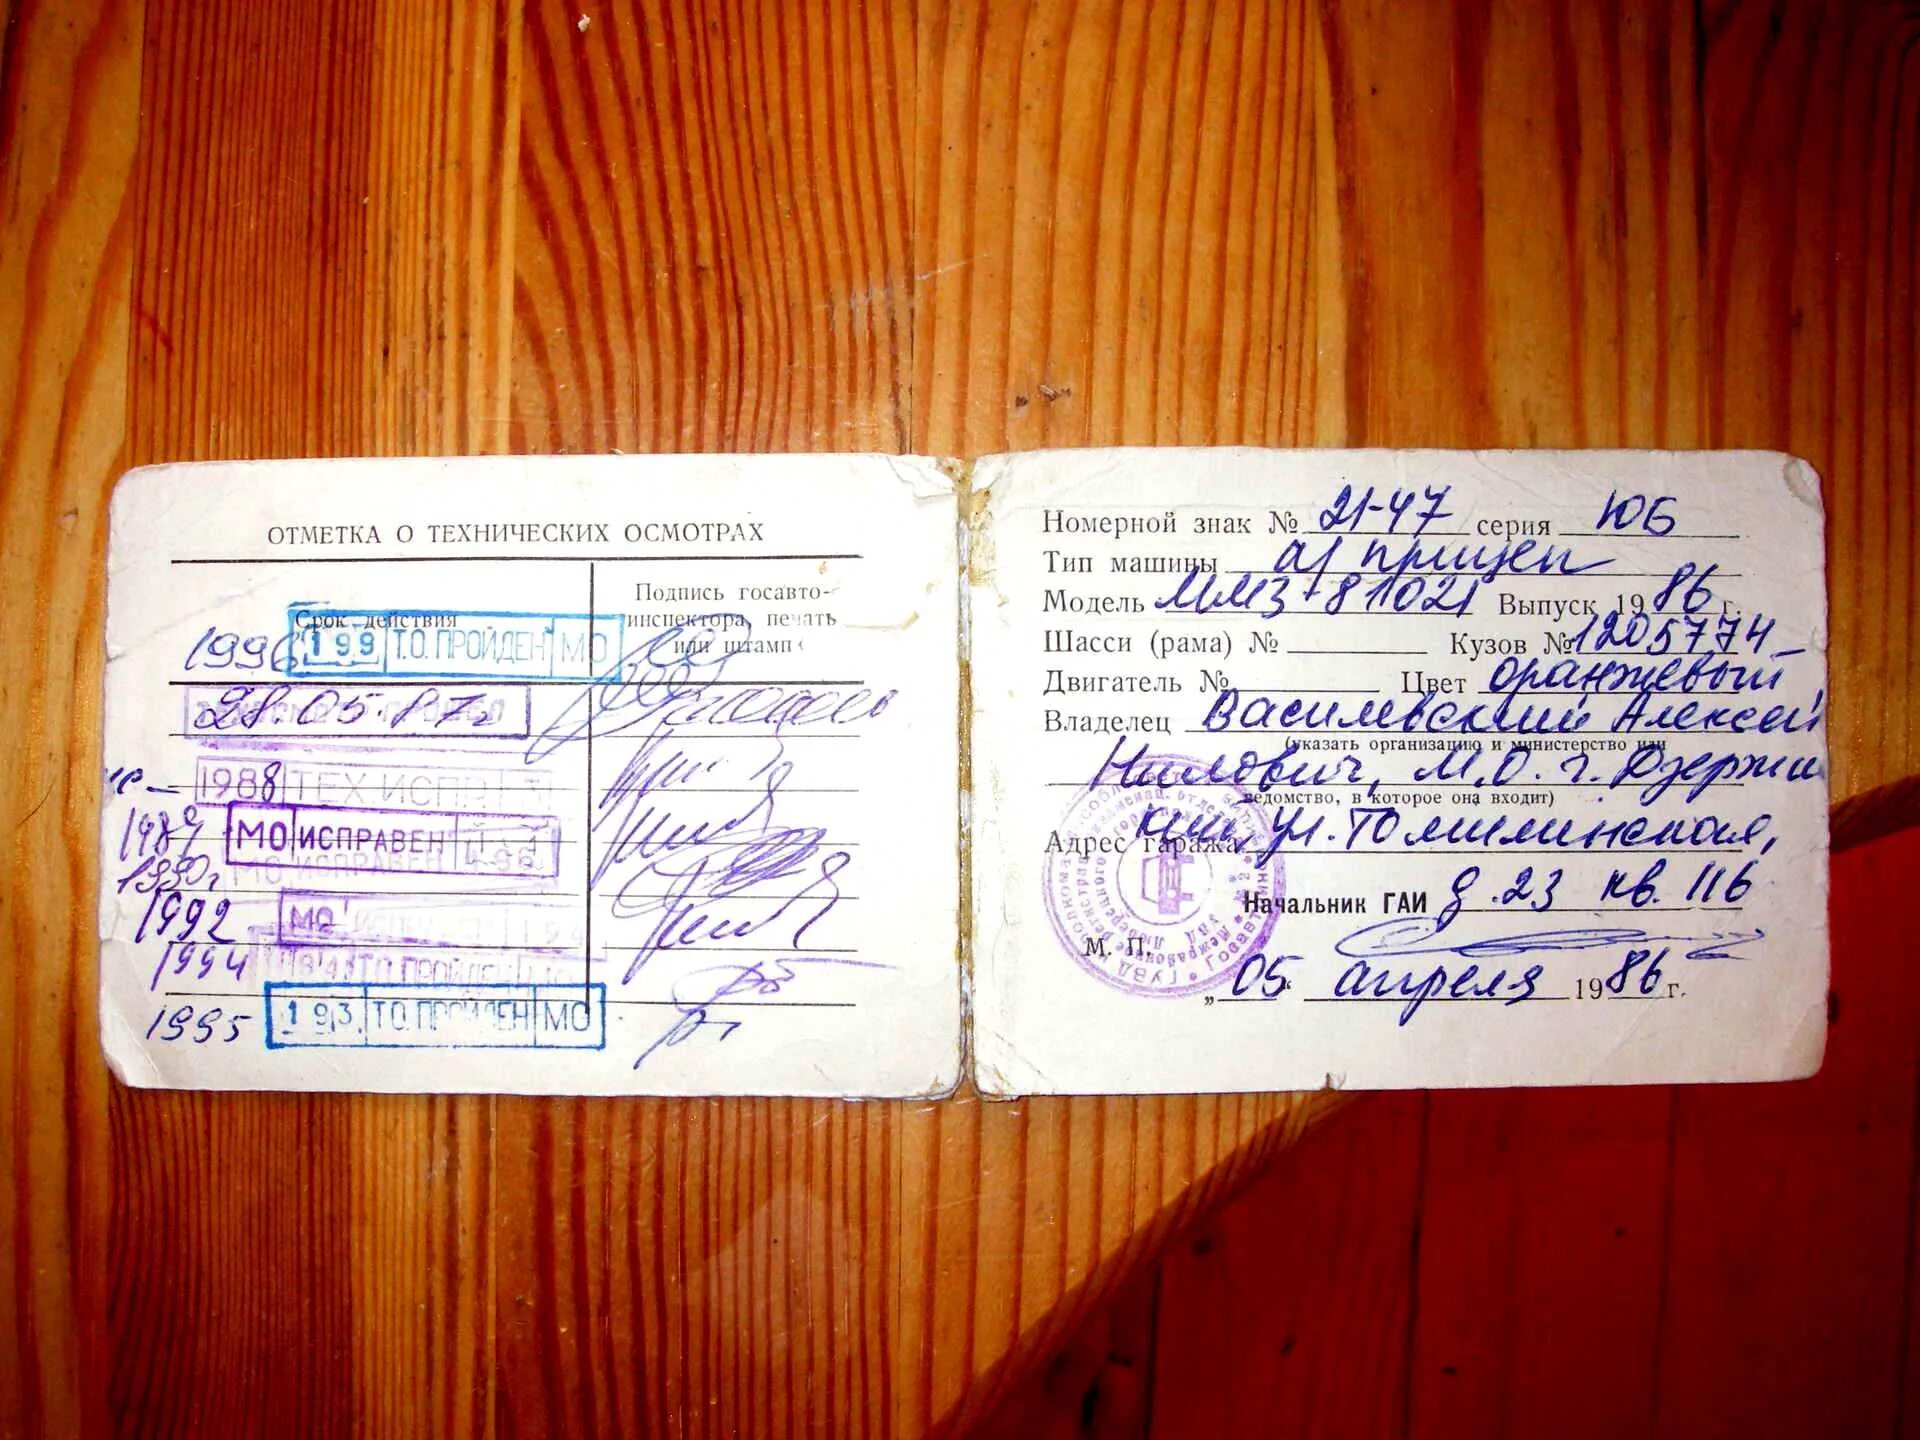 ОТМЕТКА О ТЕХНИЧЕСКИХ ОСМОТРАХ
Срок действия
Подпись госавто-
инспектора, печать
или штамп
1996 199 Т.О. ПРОЙДЕН МО
28.05.87г.
1988 ТЕХ ИСПР
1989 МО ИСПРАВЕН
1990г. МО ИСПРАВЕН
1992 МО ИСПРАВЕН
1994 Т.О. ПРОЙДЕН
1995 193 Т.О. ПРОЙДЕН МО
Номерной знак № 21-47 серия ЮБ
Тип машины а/прицеп
Модель ММЗ-81021 Выпуск 1986 г.
Шасси (рама) № Кузов № 1205774
Двигатель № Цвет оранжевый
Владелец Василевский Алексей
(указать организацию и министерство или
Нилович, М.О. г. Дзержи
ведомство, в которое она входит)
Адрес гаража ул. Томилинская,
Начальник ГАИ д. 23 кв. 116
М. П.
„05" апреля 1986 г.